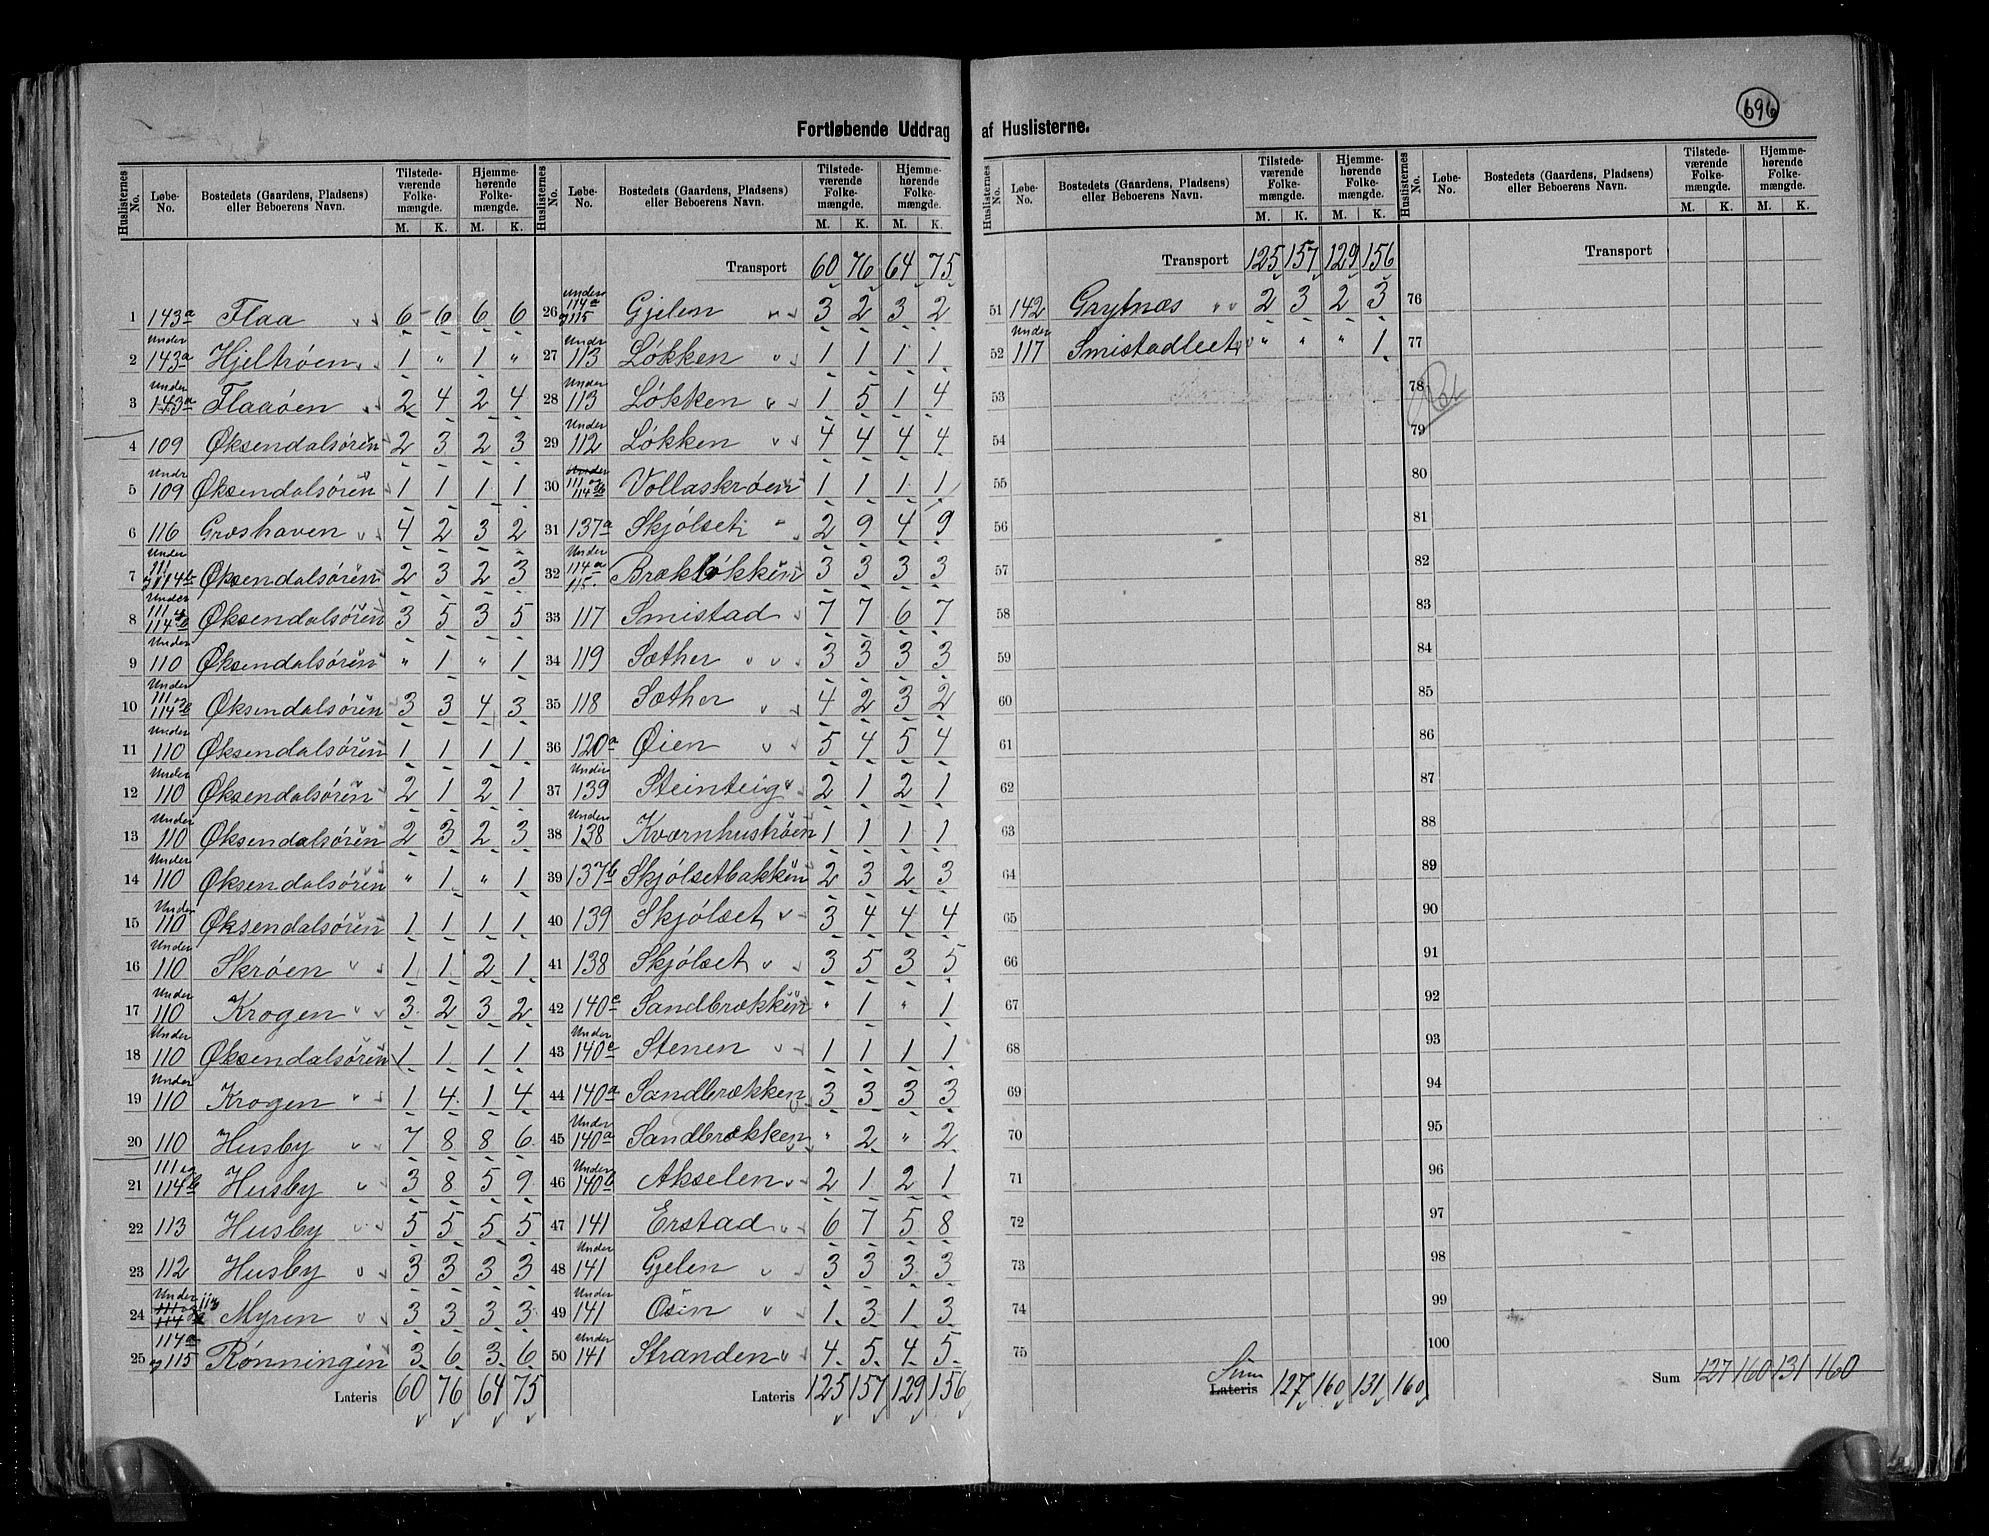 696
Fortløbende Uddrag af Huslisterne.
Huslisternes No. | Løbe-No. | Bostedets (Gaardens, Pladsens) eller Beboerens Navn. | Tilstedeværende Folkemængde. M. K. | Hjemmehørende Folkemængde. M. K.
1 143a Flaa 6 6 6 6
2 Under 143a Hjeltrøen 1 " 1 "
3 Under 143a Flaaøen 2 4 2 4
4 109 Øksendalsøren 2 3 2 3
5 Undr 109 Øksendalsøren 1 1 1 1
6 116 Groshaven 4 2 3 2
7 Under 111 og 114b Øksendalsøren 2 3 2 3
8 Under 111 og 114b Øksendalsøren 3 5 3 5
9 Under 110 Øksendalsøren " 1 " 1
10 Under 111 og 114b Øksendalsøren 3 3 4 3
11 Under 110 Øksendalsøren 1 1 1 1
12 Under 110 Øksendalsøren 2 1 2 1
13 Under 110 Øksendalsøren 2 3 2 3
14 Under 110 Øksendalsøren " 1 " 1
15 Under 110 Øksendalsøren 1 1 1 1
16 Under 110 Skrøen 1 1 2 1
17 Under 110 Krogen 3 2 3 2
18 Under 110 Øksendalsøren 1 1 1 1
19 Under 110 Krogen 1 4 1 4
20 110 Husby 7 8 8 6
21 111 og 114b Husby 3 8 5 9
22 113 Husby 5 5 5 5
23 112 Husby 3 3 3 3
24 Under 113 Myren 3 3 3 3
25 114a og 115 Rønningen 3 6 3 6
Lateris 60 76 64 75
Huslisternes No. | Løbe-No. | Bostedets (Gaardens, Pladsens) eller Beboerens Navn. | Tilstedeværende Folkemængde. M. K. | Hjemmehørende Folkemængde. M. K.
Transport 60 76 64 75
26 Under 114a og 115 Gjelen 3 2 3 2
27 Undr 113 Løkken 1 1 1 1
28 Under 113 Løkken 1 5 1 4
29 Under 112 Løkken 4 4 4 4
30 Under 111 og 114b Vollaskrøen 1 1 1 1
31 137a Skjølset 2 9 4 9
32 Under 114a 115 Brækløkken 3 3 3 3
33 117 Smistad 7 7 6 7
34 119 Sæther 3 3 3 3
35 118 Sæther 4 2 3 2
36 120a Øien 5 4 5 4
37 Under 139 Steinteig 2 1 2 1
38 Under 138 Kværnhustrøen 1 1 1 1
39 137b Skjølsetbakken 2 3 2 3
40 139 Skjølset 3 4 4 4
41 138 Skjølset 3 5 3 5
42 140c Sandbrækken " 1 " 1
43 Under 140c Stenen 1 1 1 1
44 140a Sandbrækken 3 3 3 3
45 Under 140a Sandbrækken " 2 " 2
46 Under 140b Akselen 2 1 2 1
47 141 Erstad 6 7 5 8
48 Under 141 Gjelen 3 3 3 3
49 Under 141 Osin 1 3 1 3
50 Under 141 Stranden 4 5 4 5
Lateris 125 157 129 156
Huslisternes No. | Løbe-No. | Bostedets (Gaardens, Pladsens) eller Beboerens Navn. | Tilstedeværende Folkemængde. M. K. | Hjemmehørende Folkemængde. M. K.
Transport 125 157 129 156
51 142 Grytnæs 2 3 2 3
52 Under 117 Smistadleet " " " 1
53
54
55
56
57
58
59
60
61
62
63
64
65
66
67
68
69
70
71
72
73
74
75
Sum Lateris 127 160 131 160
Huslisternes No. | Løbe-No. | Bostedets (Gaardens, Pladsens) eller Beboerens Navn. | Tilstedeværende Folkemængde. M. K. | Hjemmehørende Folkemængde. M. K.
Transport
76
77
78
79
80
81
82
83
84
85
86
87
88
89
90
91
92
93
94
95
96
97
98
99
100
Sum 127 160 131 160